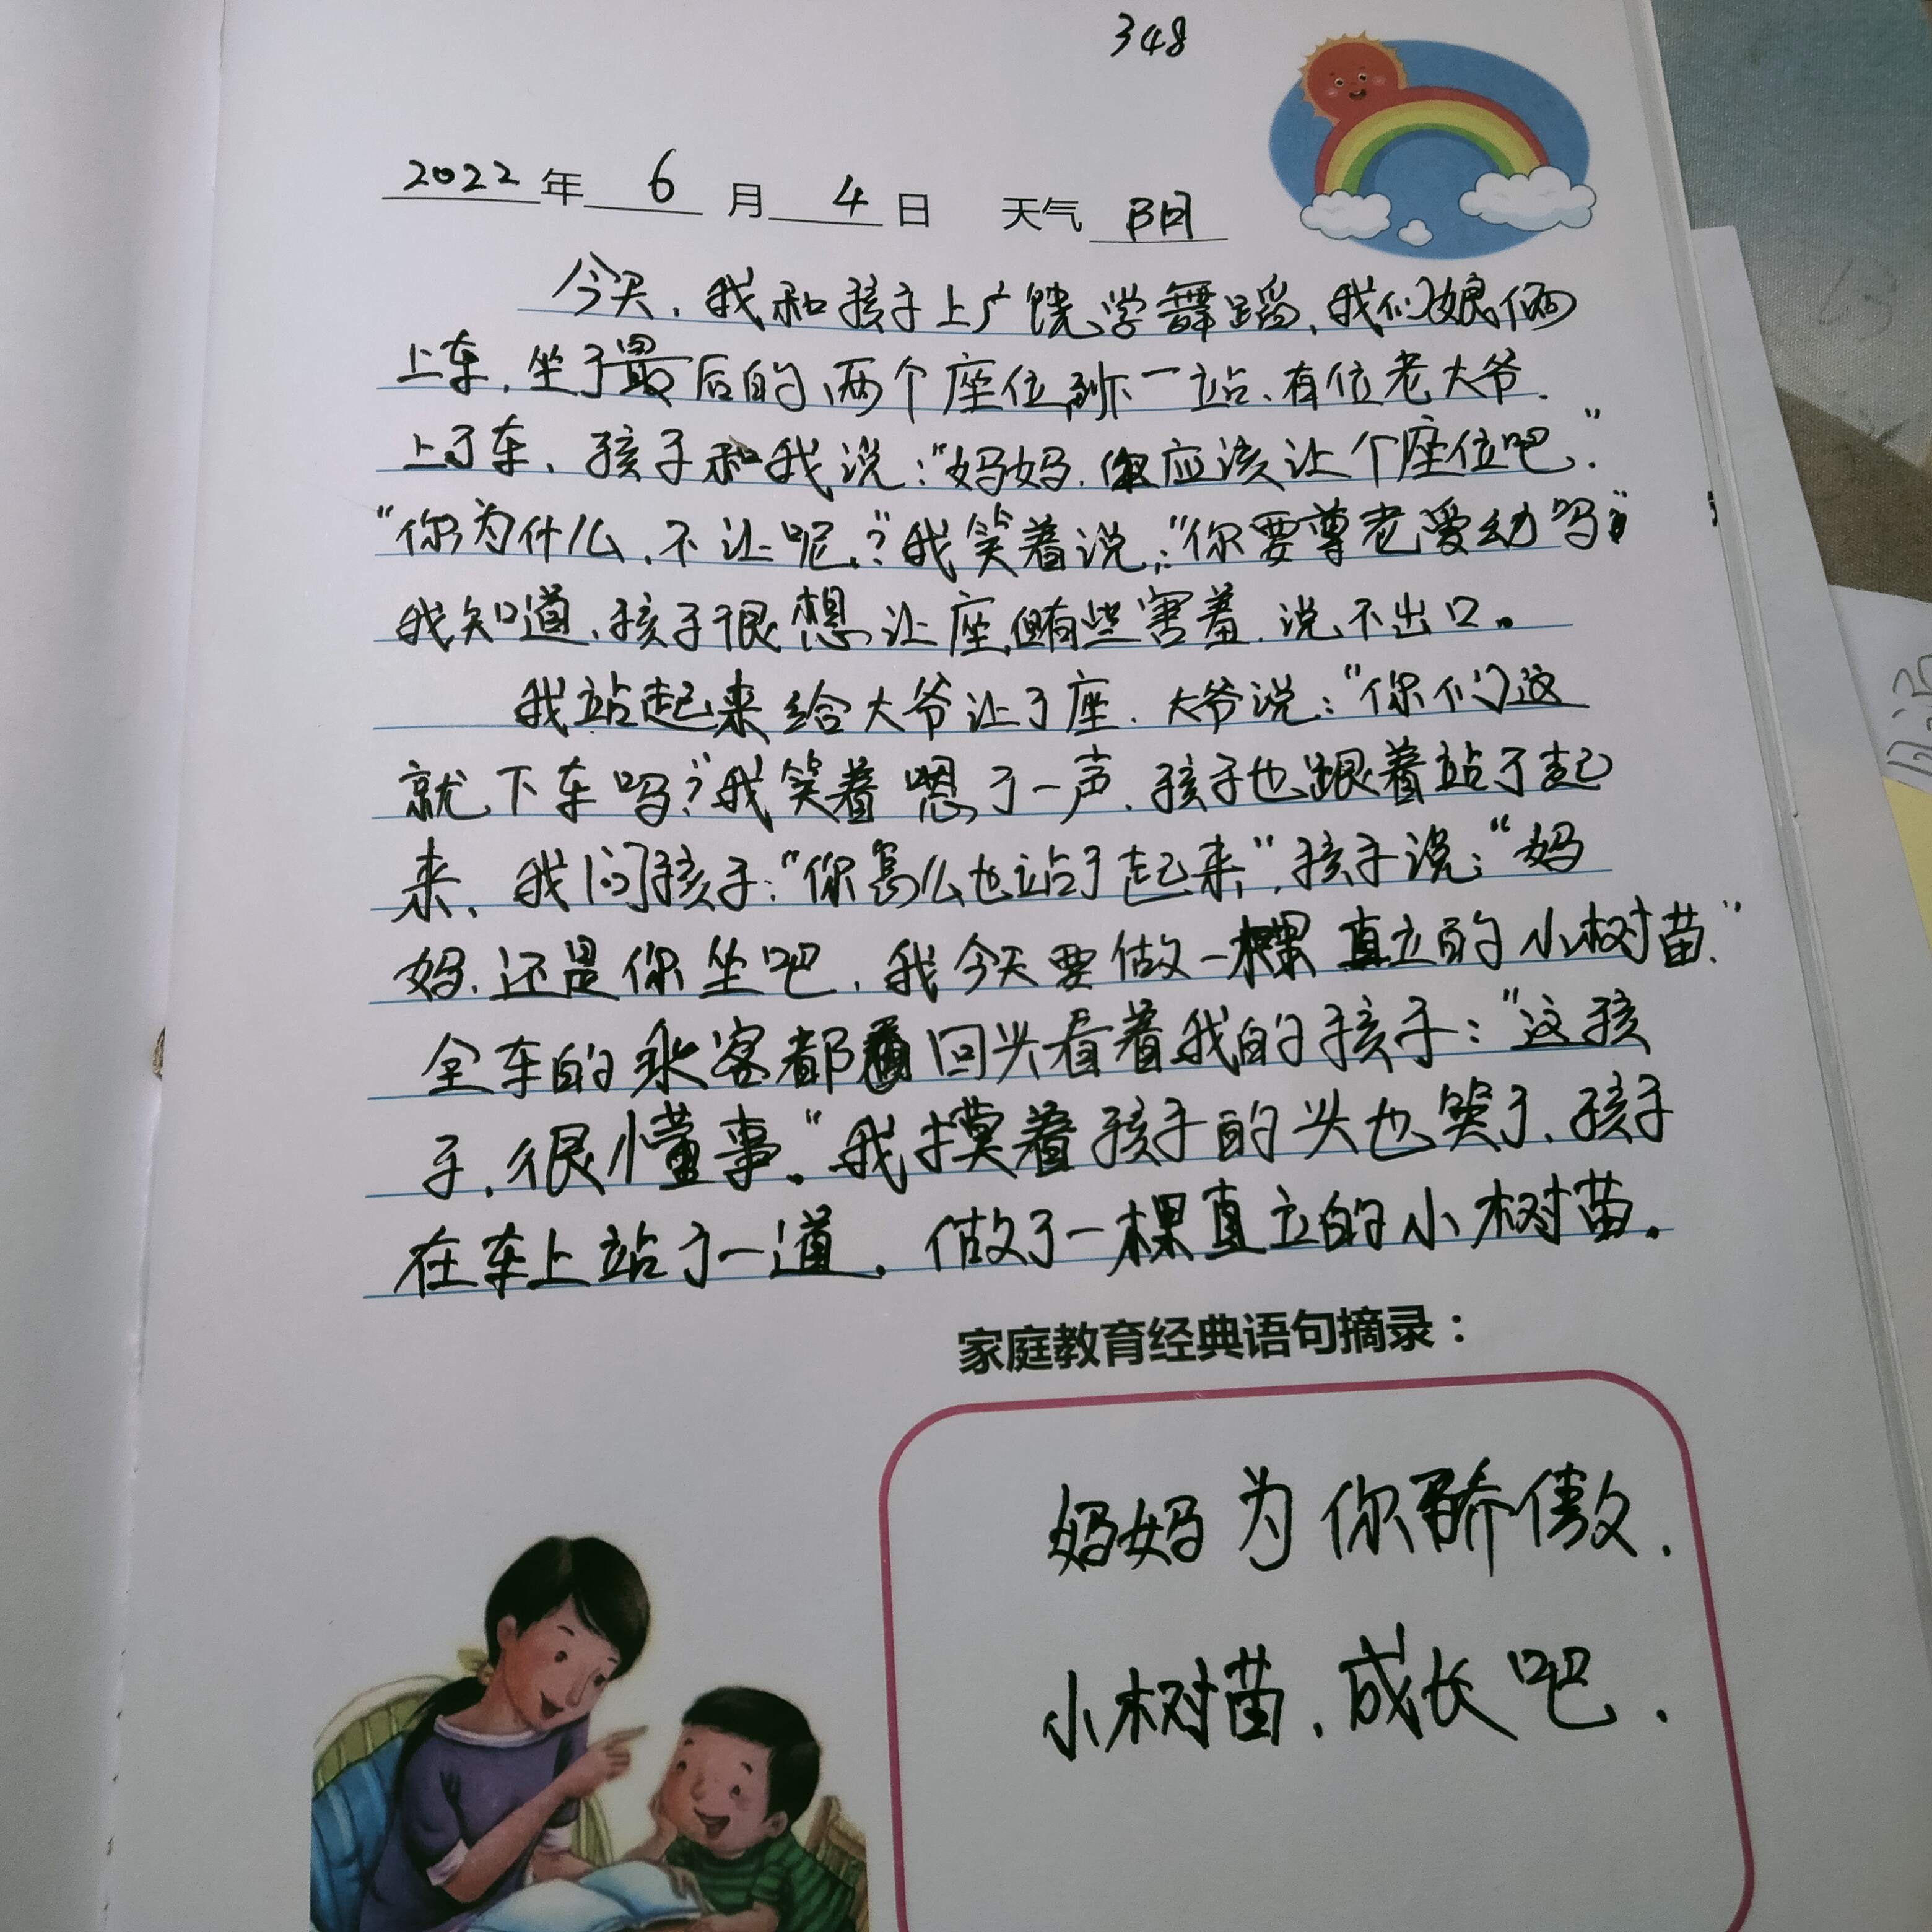 348
2022年 6 月 4 日 天气 阴
今天,我和孩子上广饶学舞蹈,我们娘俩
上车,坐了最后的两个座位,到下一站、有位老大爷.
上了车、孩子和我说:“妈妈.你应该让个座位吧.”
“你为什么.不让呢?”我笑着说:“你要尊老爱幼吗”
我知道、孩子很想让座,但有些害羞.说不出口。
我站起来给大爷让了座.大爷说:“你们这
就下车吗?”我笑着嗯了一声.孩子也跟着站了起
来、我问孩子:“你怎么也站了起来”,孩子说:“妈
妈.还是你坐吧.我今天要做一棵直立的小树苗.”
全车的乘客都回头看着我的孩子:“这孩
子.很懂事。”我摸着孩子的头也笑了、孩子
在车上站了一道.做了一棵直立的小树苗。
家庭教育经典语句摘录:
妈妈为你骄傲.
小树苗.成长吧.